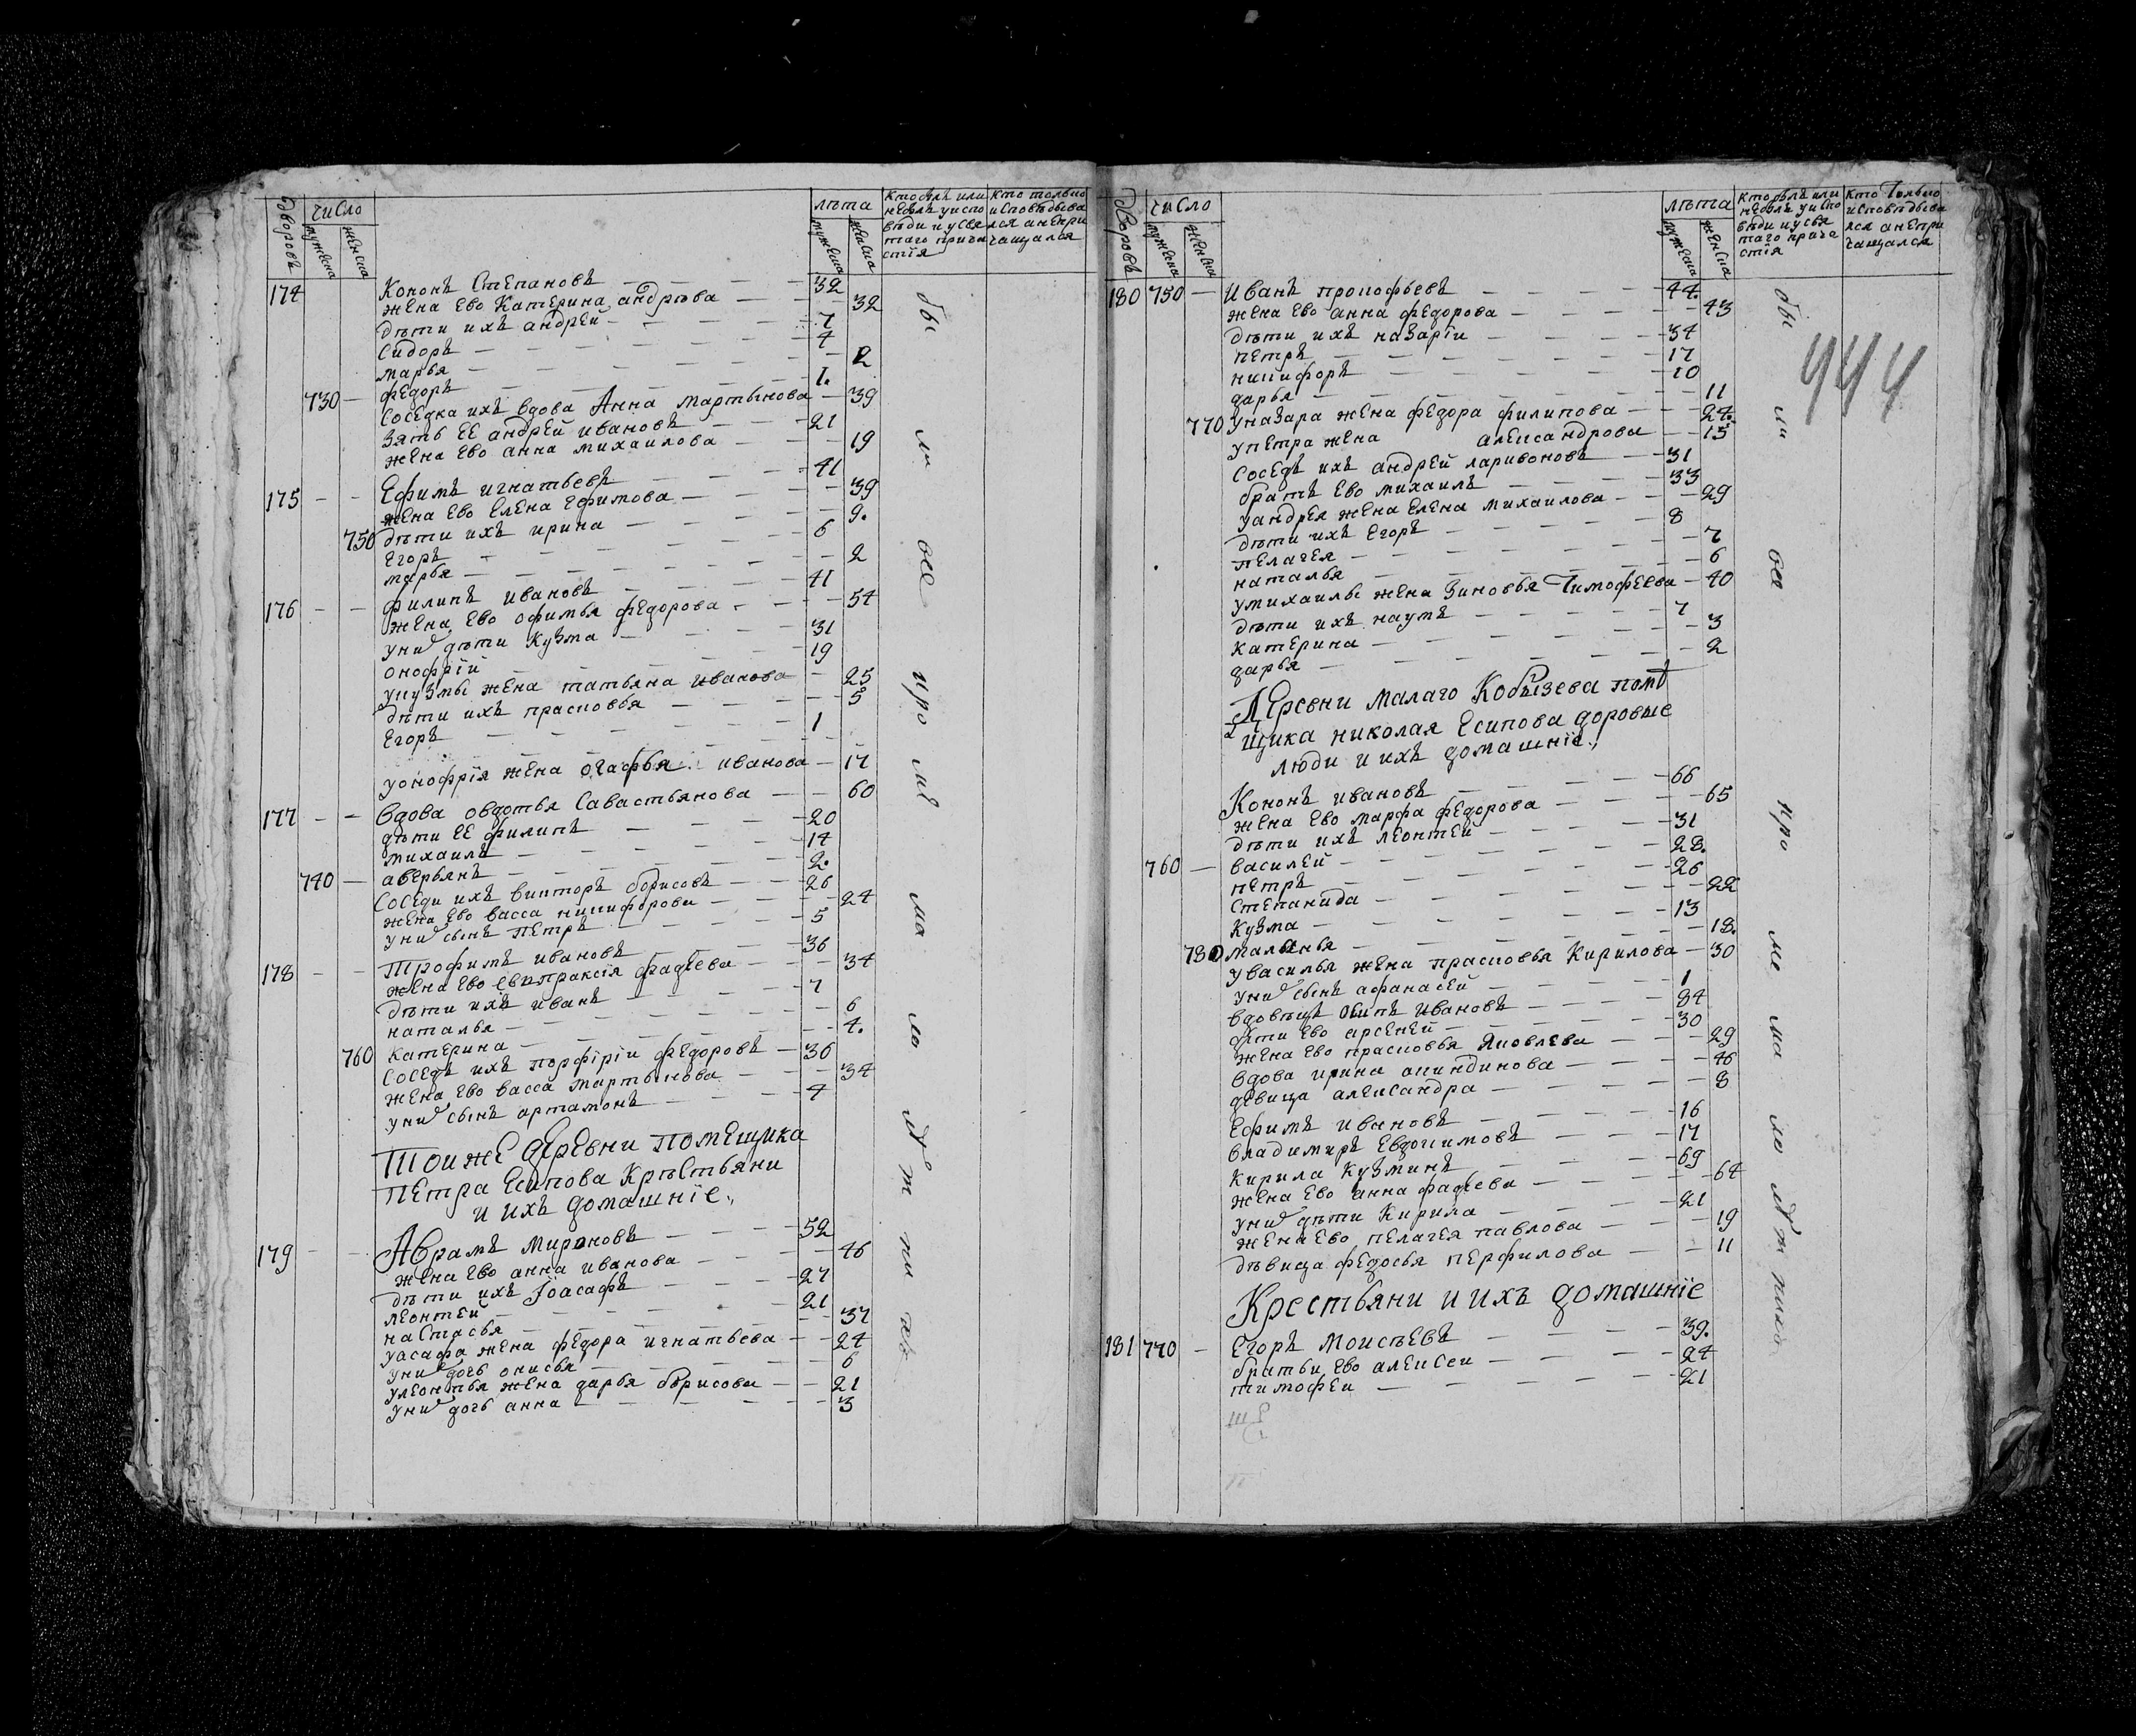 дворовъ
число
мужеска
женска
лѣта
мужеска
женска
кто былъ или
небылъ у испо
вѣди и у свя
таго прича
стїя
кто только
исповѣдыва
лся а непри
чащался
174 Кононъ Степановъ 32
жена ево Катерина андрѣева 32
дѣти ихъ андрей 7
Сидоръ 4
марья 2
730 федоръ 1.
Соседка ихъ вдова Анна мартынова 39
зять ее андрей ивановъ 21
жена ево анна михаилова 19
175 Ефимъ игнатьевъ 41
жена ево елена ефимова 39
750 дѣти ихъ ирина 9.
Егоръ 6
марья 2
176 филипъ ивановъ 41
жена ево офимья федорова 54
у них дѣти Кузма 31
онофрїй 19
у кузмы жена татьяна иванова 25
дѣти ихъ прасковья 5
Егоръ 1
у онофрїя жена огафья иванова 17
177 вдова овдотья Савастьянова 60
дѣти ее филипъ 20
михаилъ 14
740 аверьянъ 2.
Соседи ихъ викторъ борисовъ 26
жена ево васса никифорова 24
у них сынъ петръ 5
178 Трофимъ ивановъ 36
жена ево евпраксїя фадѣева 34
дѣти ихъ иванъ 7
наталья 6
760 катерина 4.
Соседъ ихъ порфірїи федоровъ 36
жена ево васса мартынова 34
у них сынъ артамонъ 4
Тои же деревни помещика
петра Есипова Крѣстьяни
и ихъ домашнїе.
179 Аврамъ мироновъ 52
жена ево анна иванова 46
дѣти ихъ Їоасафъ 27
леонтей 21
настасья 37
у асафа жена федора игнатьева 24
у них дочь онисья 6
у леонтья жена дарья борисова 21
у них дочь анна 3
бы
ли
все
кро
ме
ма
ло
лѣт
ни
хъ
дворовъ
число
мужеска
женска
лѣта
мужеска
женска
кто былъ или
небылъ у испо
вѣди и у свя
таго прича
стїя
кто только
исповѣдыва
лся а непри
чащался
444
180 750 Иванъ прокофьевъ 44.
жена ево анна федорова 43
дѣти ихъ назарїи 34
петръ 17
никифоръ 10
дарья 11
770 у назара жена федора филипова 24.
у петра жена александрова 15
Соседъ ихъ андрей ларивоновъ 31
братъ ево михаилъ 33
у андрея жена елена михаилова 29
дѣти ихъ Егоръ 8
пелагея 7
наталья 6
у михаилы жена Зиновья Тимофеева 40
дѣти ихъ наумъ 7
катерина 3
дарья 2
Деревни малаго Кобызева помѣ
щика николая Есипова доровые
люди и ихъ домашнїе.
Кононъ ивановъ 66
жена ево марфа федорова 65
дѣти ихъ леонтей 31
760 василей 28.
петръ 26
Степанида 22
Кузма 13
780 маланья 18.
у василья жена прасковья Кирилова 30
у них сынъ афанасей 1
вдовецъ осипъ ивановъ 84
дѣти ево арсеней 30
жена ево прасковья Яковлева 29
вдова ирина акиндинова 46
девица александра 8
Ефимъ ивановъ 16
владимиръ евдокимовъ 17
Кирила Кузминъ 69
жена ево анна фадѣева 64
у них дѣти Кирила 21
жена ево пелагея павлова 19
дѣвица федосья перфилова 11
Крестьяни и ихъ домашнїе
181 770 Егоръ моисѣевъ 39.
братьи ево алексеи 24
тимофеи 21
бы
ли
все
кро
ме
ма
ло
лѣт
нихъ